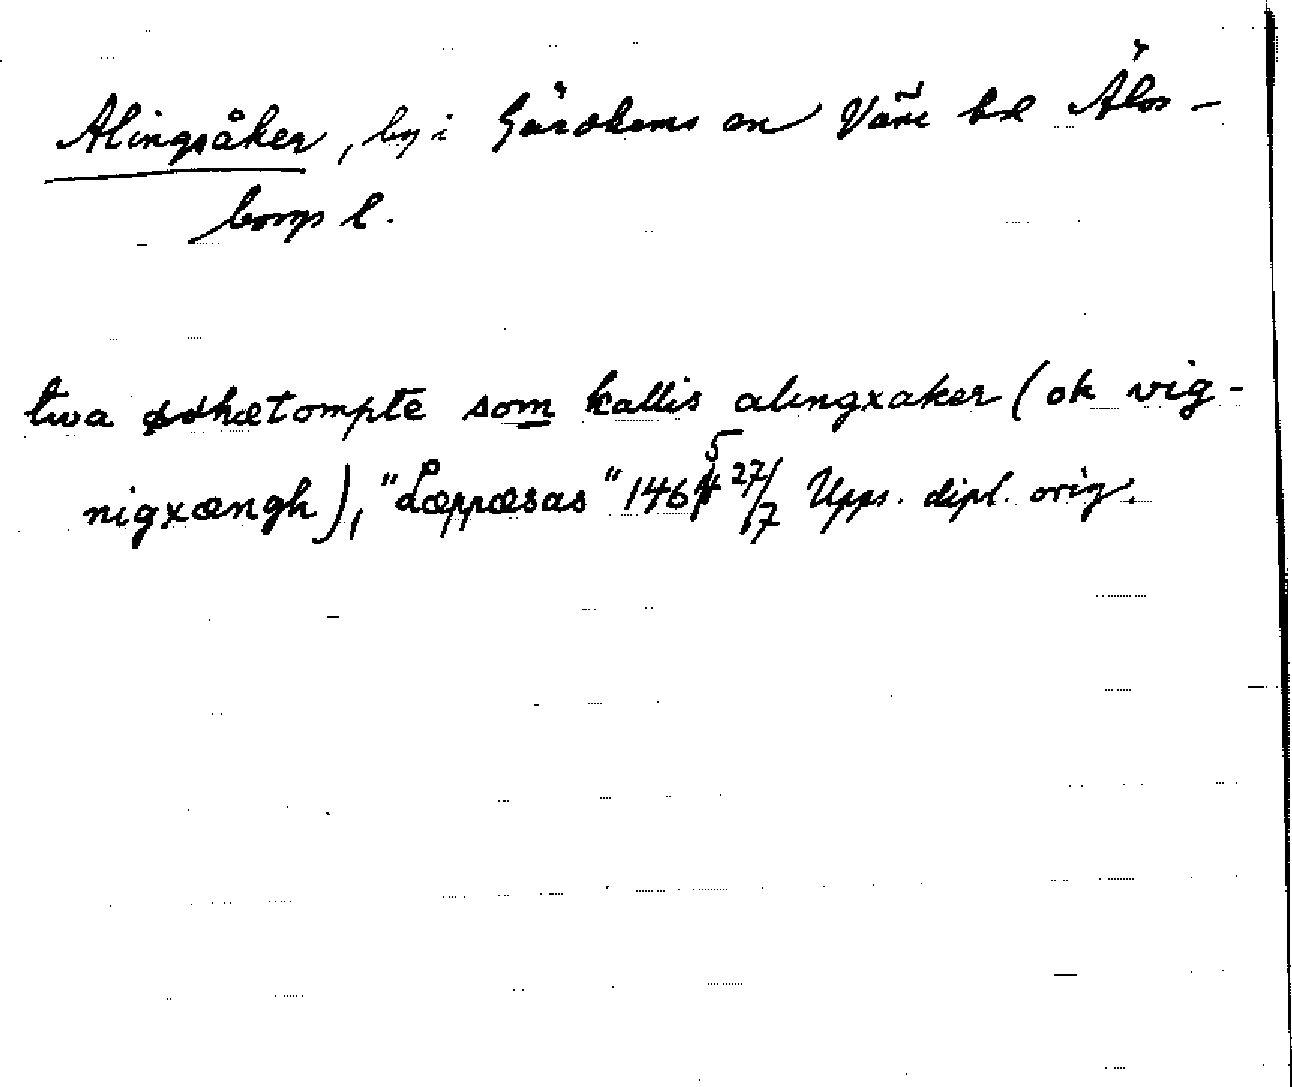 Alingsåker, by i Gärdhems sn Väne hd Älvs-
borgs l.
twa ødhætompte som kallis alingxaker (ok vig-
nigxængh), "Læppæsas" 1465 27/7 Upps. dipl. orig.